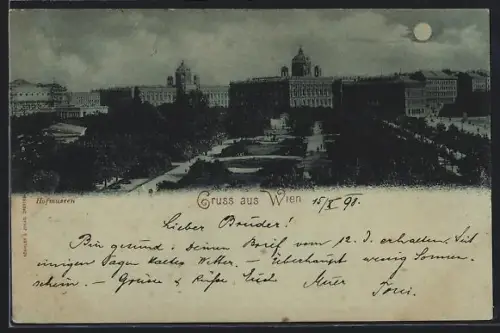 Hofmuseen
Gruss aus Wien
15/X 98.
Lieber Bruder!
Bin gesund. Deinen Brief vom 12. d. erhalten. Seit
einigen Tagen kaltes Wetter. – Ueberhaupt wenig Sonnen-
schein. – Grüsse & Küsse Euch
Toni.